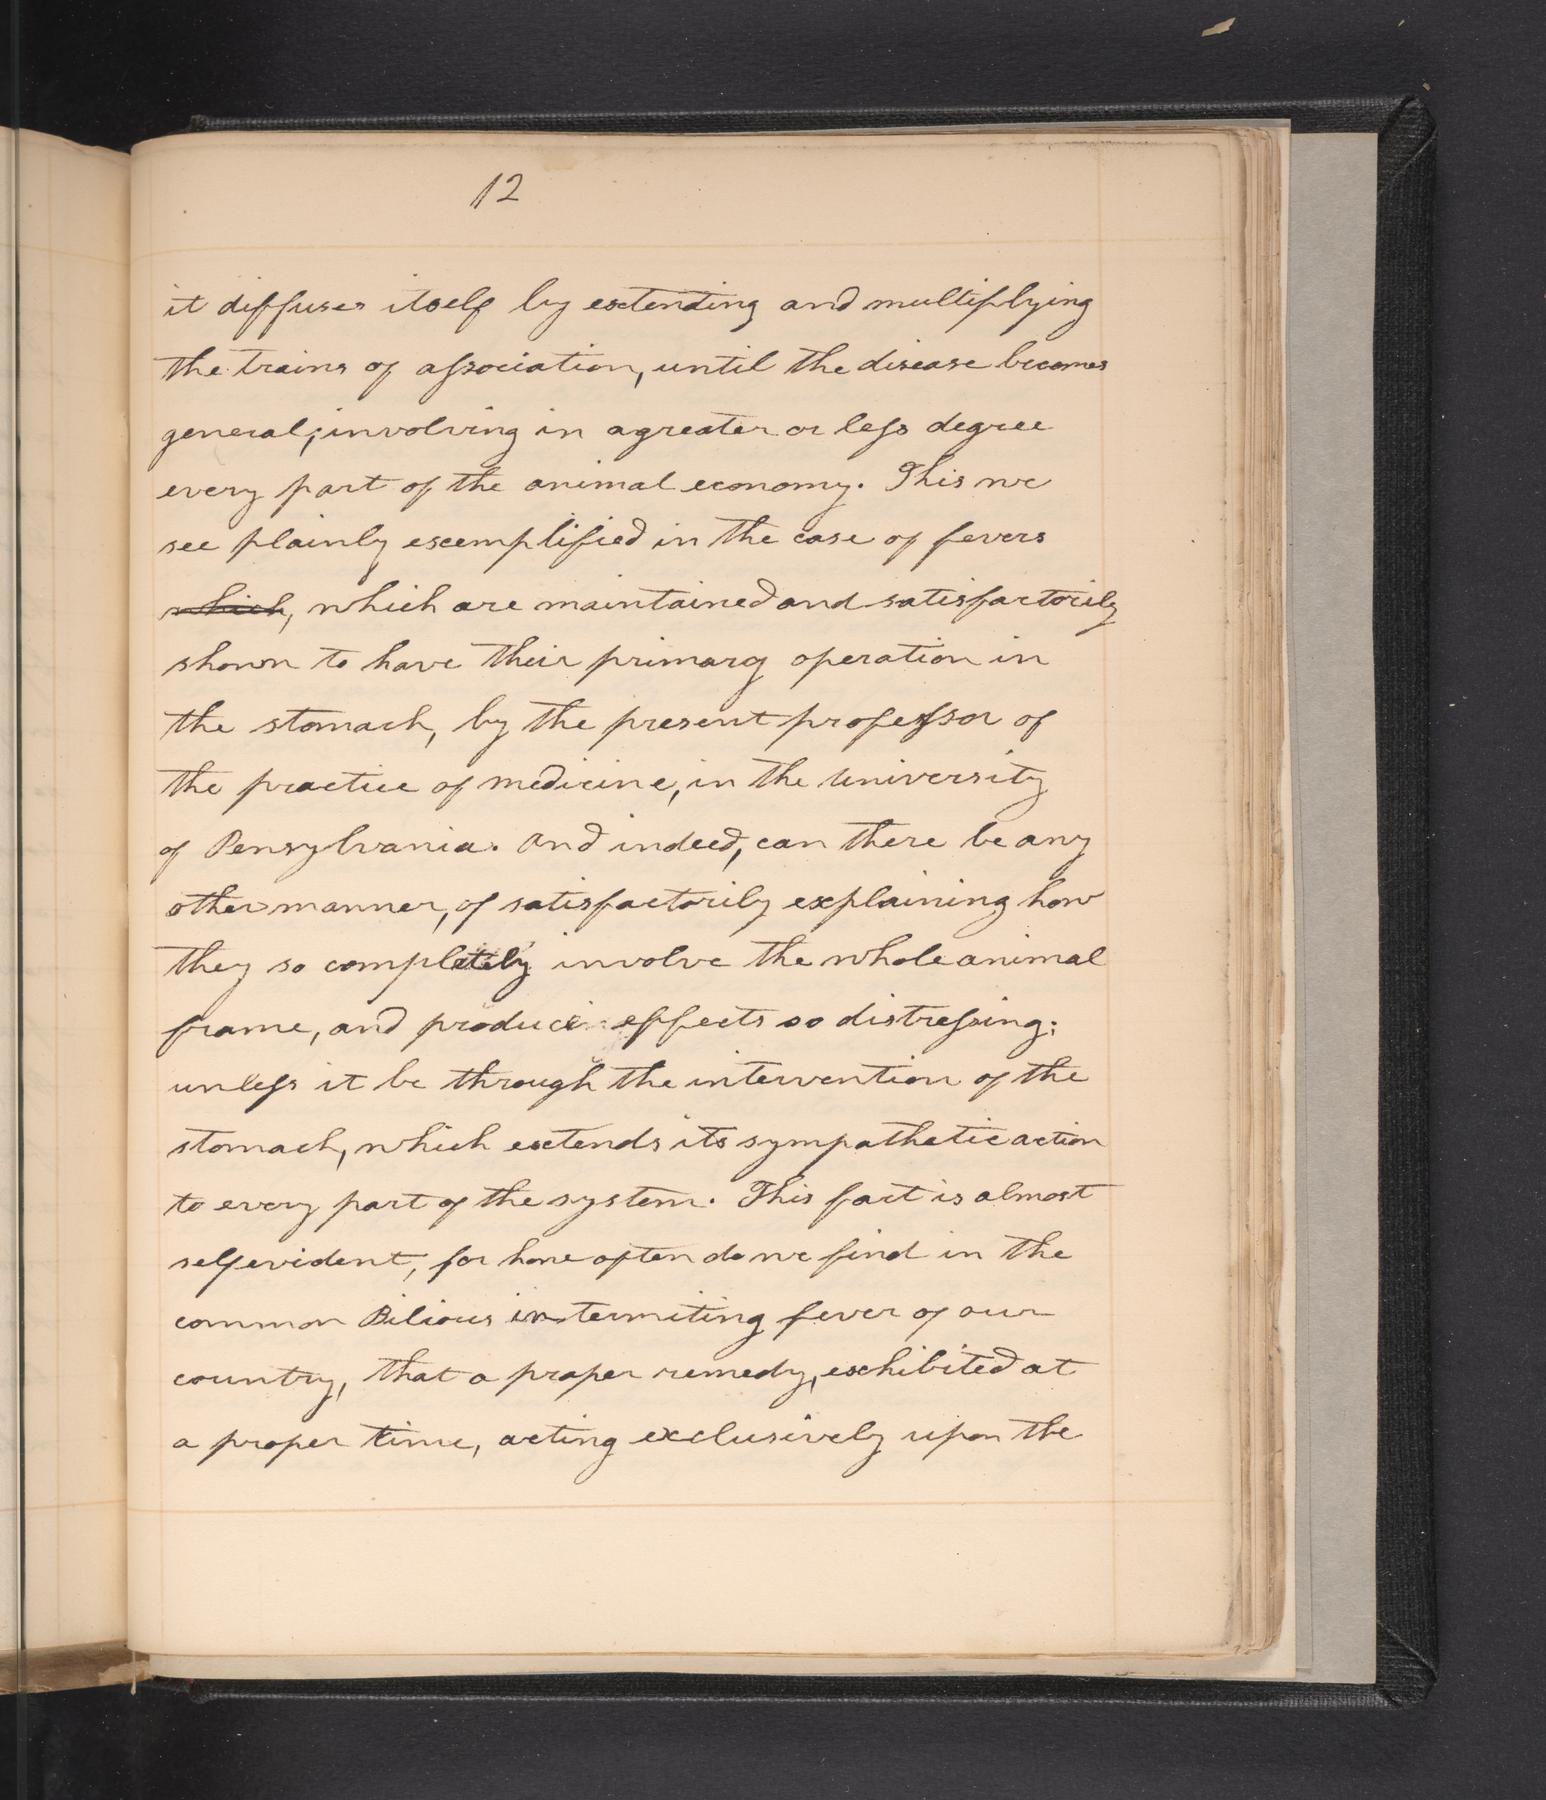 12
it diffuses itself by extending and multiplying
the trains of aſsociation, until the disease becomes
general; involving in a greater or leſs degree
every part of the animal economy. This we
see plainly exemplified in the case of fevers
which, which are maintained and satisfactorily
shown to have their primary operation in
the stomach, by the present profeſsor of
the practice of medicine, in the University
of Pensylvania. And indeed, can there be any
other manner, of satisfactorily explaining how
they so completely involve the whole animal
frame, and produce effects so distreſsing;
unleſs it be through the intervention of the
stomach, which extends its sympathetic action
to every part of the system. This fact is almost
selfevident, for how often do we find in the
common Bilious intermiting fever of our
country, that a proper remedy, exhibited at
a proper time, acting exclusively upon the